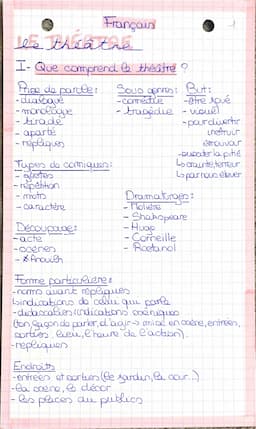 Français
LE THÉÂTRE
le théâtre
I- Que comprend le théâtre ?
Prise de parole:
- dialogue
- monologue
- tirade
- aparté
- répliques
Sous genres:
- comédie
- tragédie
But:
- être joué
- visuel
- pour divertir
instruir
émouvoir
- susciter la pitié
↳ crainte, terreur
↳ par nous élever
Types de comiques:
- gestes
- répétition
- mots
- caractère
Dramaturges:
- Molière
- Shakspeare
- Hugo
- Corneille
- Rostand
Découpage:
- acte
- scènes
- Anouilh
Forme particulière:
- noms avant répliques
↳ indications de celui qui parle
- didascalies (indications scéniques
(ton, façon de parler, d'agir → mise en scène, entrées,
sorties, lieu, l'heure de l'action).
- répliques
Endroits
- entrées et sorties (le jardin, la cour...)
- la scène, le décor
- les places du publics